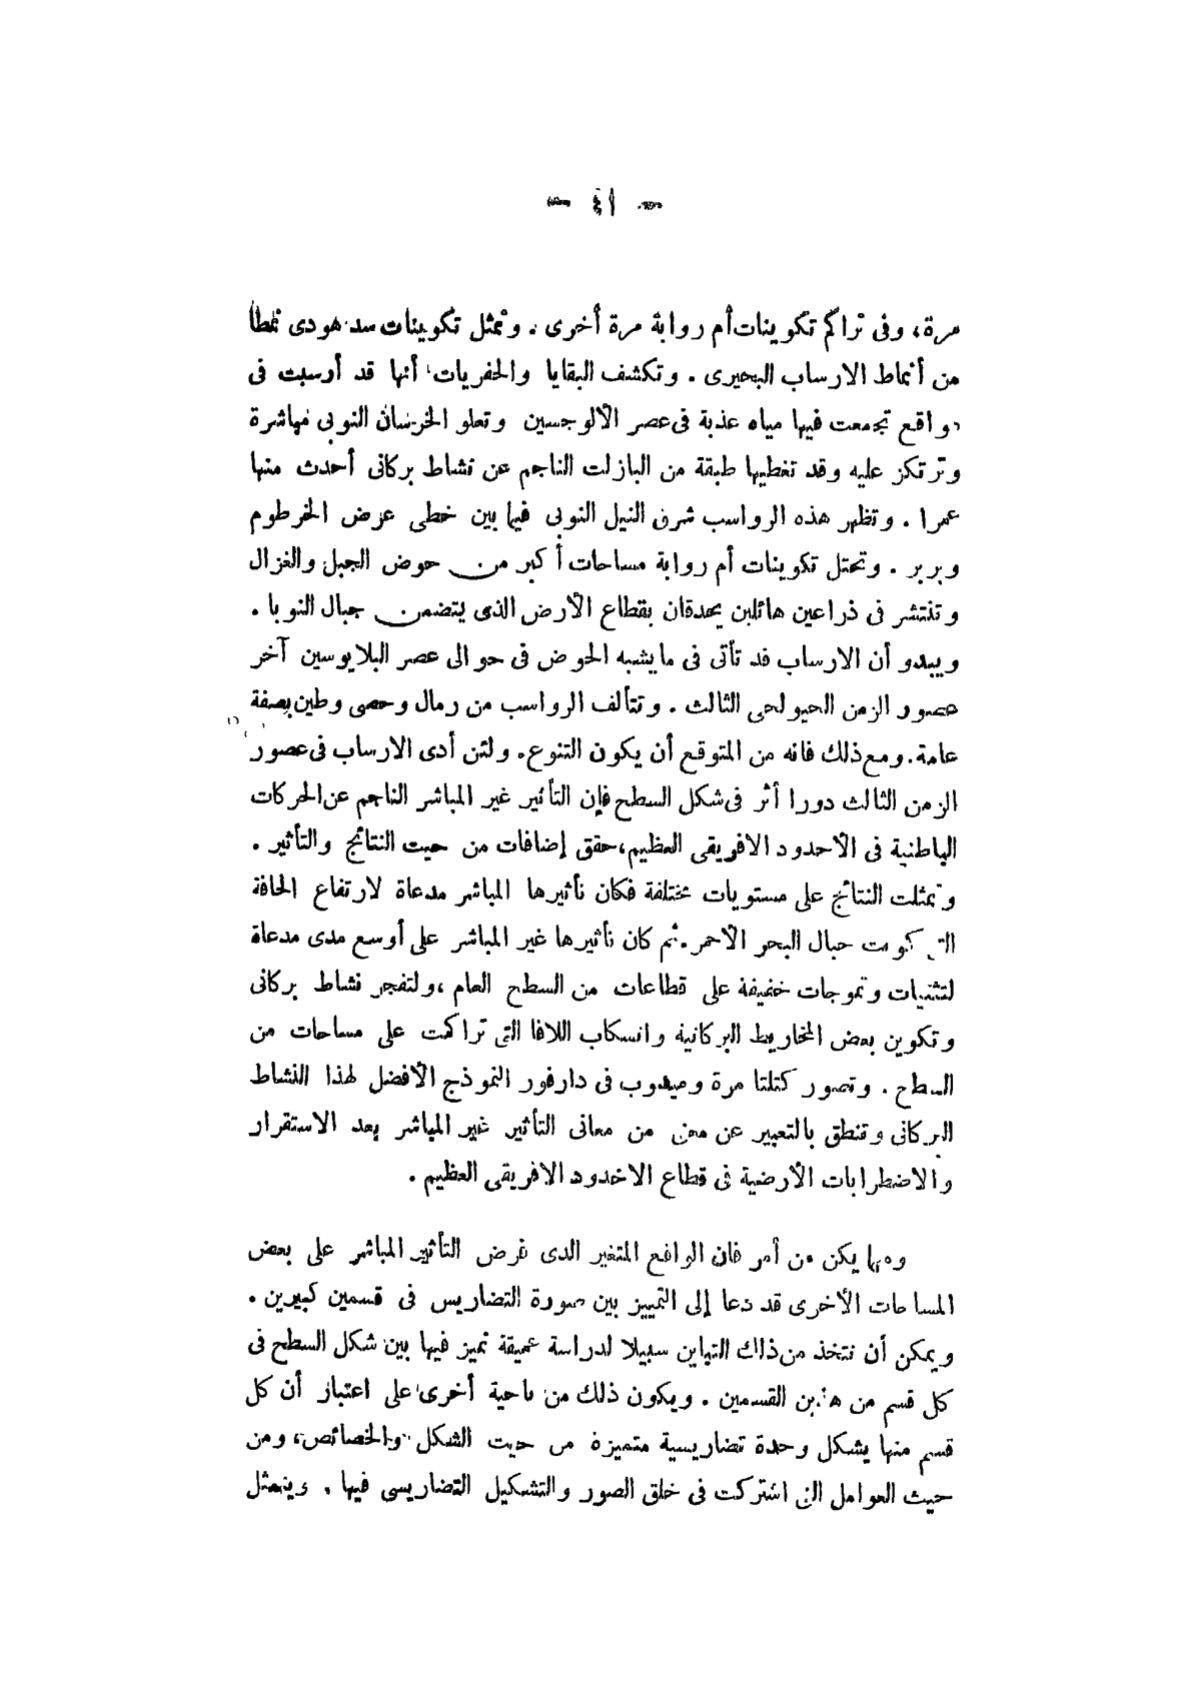 — ٤١ —
مرة، وفى تراكم تكوينات أم روابة مرة أخرى . وتمثل تكوينات سد هودى نمطا
من أنماط الارساب البحيرى . وتكشف البقايا والحفريات أنها قد أرسبت فى
مواقع تجمعت فيها مياه عذبة فى عصر الألوجسين وتعلو الخرسان النوبى مباشرة
وترتكز عليه وقد تغطيها طبقة من البازلت الناجم عن نشاط بركانى أحدث منها
عمرا . وتظهر هذه الرواسب شرق النيل النوبى فيما بين خطى عرض الخرطوم
وبربر . وتحتل تكوينات أم روابة مساحات أكبر من حوض الجبل والغزال
وتنتشر فى ذراعين هائلين يحدقان بقطاع الأرض الذى يتضمن جبال النوبا .
ويبدو أن الارساب قد تأتى فى ما يشبه الحوض فى حوالى عصر البلايوسين آخر
عصور الزمن الجيولجى الثالث . وتتألف الرواسب من رمال وحصى وطين بصفة
عامة. ومع ذلك فانه من المتوقع أن يكون التنوع. ولئن أدى الارساب فى عصور
الزمن الثالث دورا أثر فى شكل السطح فإن التأثير غير المباشر الناجم عن الحركات
الباطنية فى الأحدود الافريقى العظيم، حقق إضافات من حيث النتائج والتأثير .
وتمثلت النتائج على مستويات مختلفة فكان تأثيرها المباشر مدعاة لارتفاع الحافة
التى كونت جبال البحر الأحمر. ثم كان تأثيرها غير المباشر على أوسع مدى مدعاة
لتثنيات وتموجات خفيفة على قطاعات من السطح العام، ولتفجر نشاط بركانى
وتكوين بعض المخاريط البركانية وانسكاب اللافا التى تراكمت على مساحات من
السطح . وتصور كتلتا مرة وميدوب فى دارفور النموذج الأفضل لهذا النشاط
البركانى وتنطق بالتعبير عن معنى من معانى التأثير غير المباشر بعد الاستقرار
والاضطرابات الأرضية فى قطاع الاخدود الافريقى العظيم .
ومهما يكن من أمر فان الواقع المتغير الذى فرض التأثير المباشر على بعض
المساحات الأخرى قد دعا إلى التمييز بين صورة التضاريس فى قسمين كبيرين .
ويمكن أن نتخذ من ذلك التباين سبيلا لدراسة عميقة تميز فيها بين شكل السطح فى
كل قسم من هذين القسمين . ويكون ذلك من ناحية أخرى على اعتبار أن كل
قسم منها يشكل وحدة تضاريسية متميزة من حيث الشكل والخصائص، ومن
حيث العوامل التى اشتركت فى خلق الصور والتشكيل التضاريسى فيها . ويتمثل